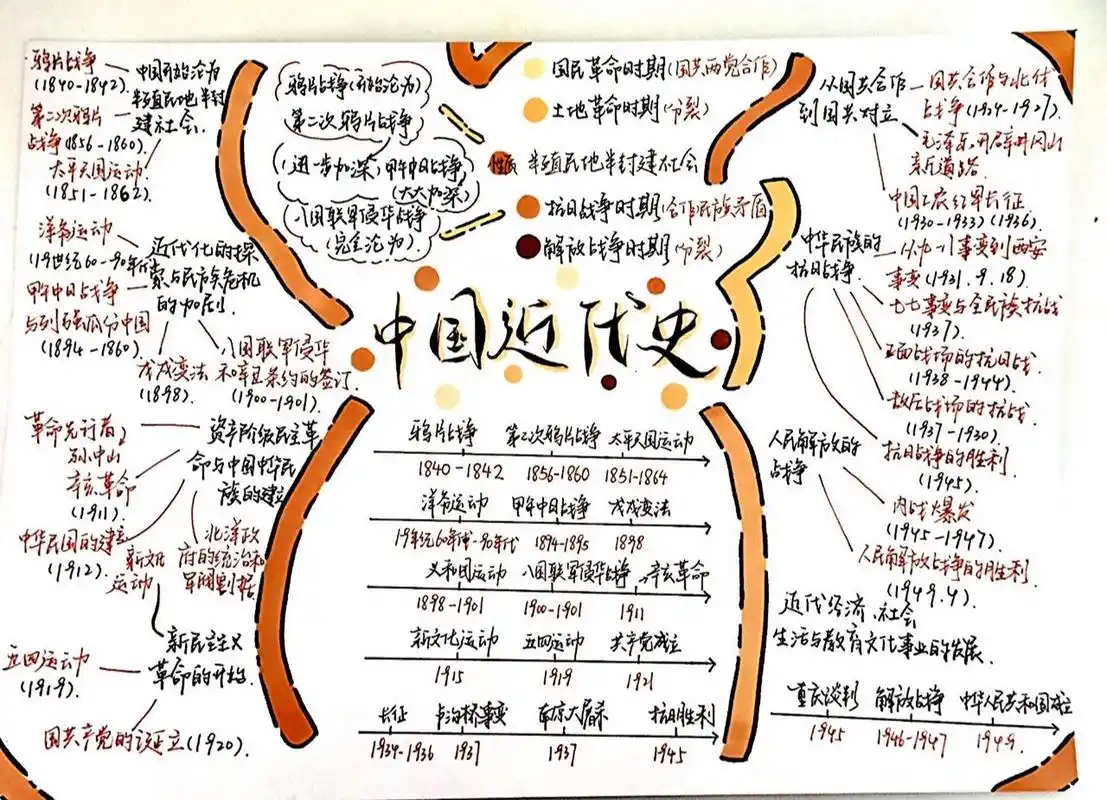 鸦片战争
(1840-1842)
中国开始沦为
半殖民地半封
建社会.
第二次鸦片
战争(1856-1860)
太平天国运动
(1851-1862)
洋务运动
(19世纪60-90年代)
甲午中日战争
与列强瓜分中国
(1894-1860)
近代化的探
索与民族危机
的加剧
戊戌变法
(1898)
八国联军侵华
和辛丑条约的签订
(1900-1901)
革命先行者
孙中山
辛亥革命
(1911)
资产阶级民主革
命与中国中华民
族的建立
中华民国的建立
(1912)
新文化
运动
北洋政
府的统治和
军阀割据
新民主主义
革命的开始
五四运动
(1919)
国共产党的诞立(1920)
鸦片战争(开始沦为)
第二次鸦片战争
(进一步加深)甲午中日战争
(大大加深)
八国联军侵华战争
(完全沦为)
国民革命时期(国共两党合作)
土地革命时期(分裂)
性质 半殖民地半封建社会
抗日战争时期(合作民族矛盾
解放战争时期(分裂)
中国近代史
鸦片战争 第二次鸦片战争 太平天国运动
1840-1842 1856-1860 1851-1864
洋务运动 甲午中日战争 戊戌变法
19世纪60年代-90年代 1894-1895 1898
义和团运动 八国联军侵华战争 辛亥革命
1898-1901 1900-1901 1911
新文化运动 五四运动 共产党成立
1915 1919 1921
长征 卢沟桥事变 南京大屠杀 抗日胜利
1934-1936 1937 1937 1945
从国共合作
到国共对立
国共合作与北伐
战争(1924-1927)
毛泽东开辟井冈山
新道路
中国工农红军长征
(1930-1933)(1936)
中华民族的
抗日战争
从九一八事变到西安
事变(1931.9.18)
七七事变与全民族抗战
(1937)
正面战场的抗日战
(1938-1944)
敌后战场的抗战
(1937-1930)
抗日战争的胜利
(1945)
人民解放的
战争
内战爆发
(1945-1947)
人民解放战争的胜利
(1949.4)
近代经济、社会
生活与教育文化事业的发展.
重庆谈判 解放战争 中华人民共和国成立
1945 1946-1947 1949.